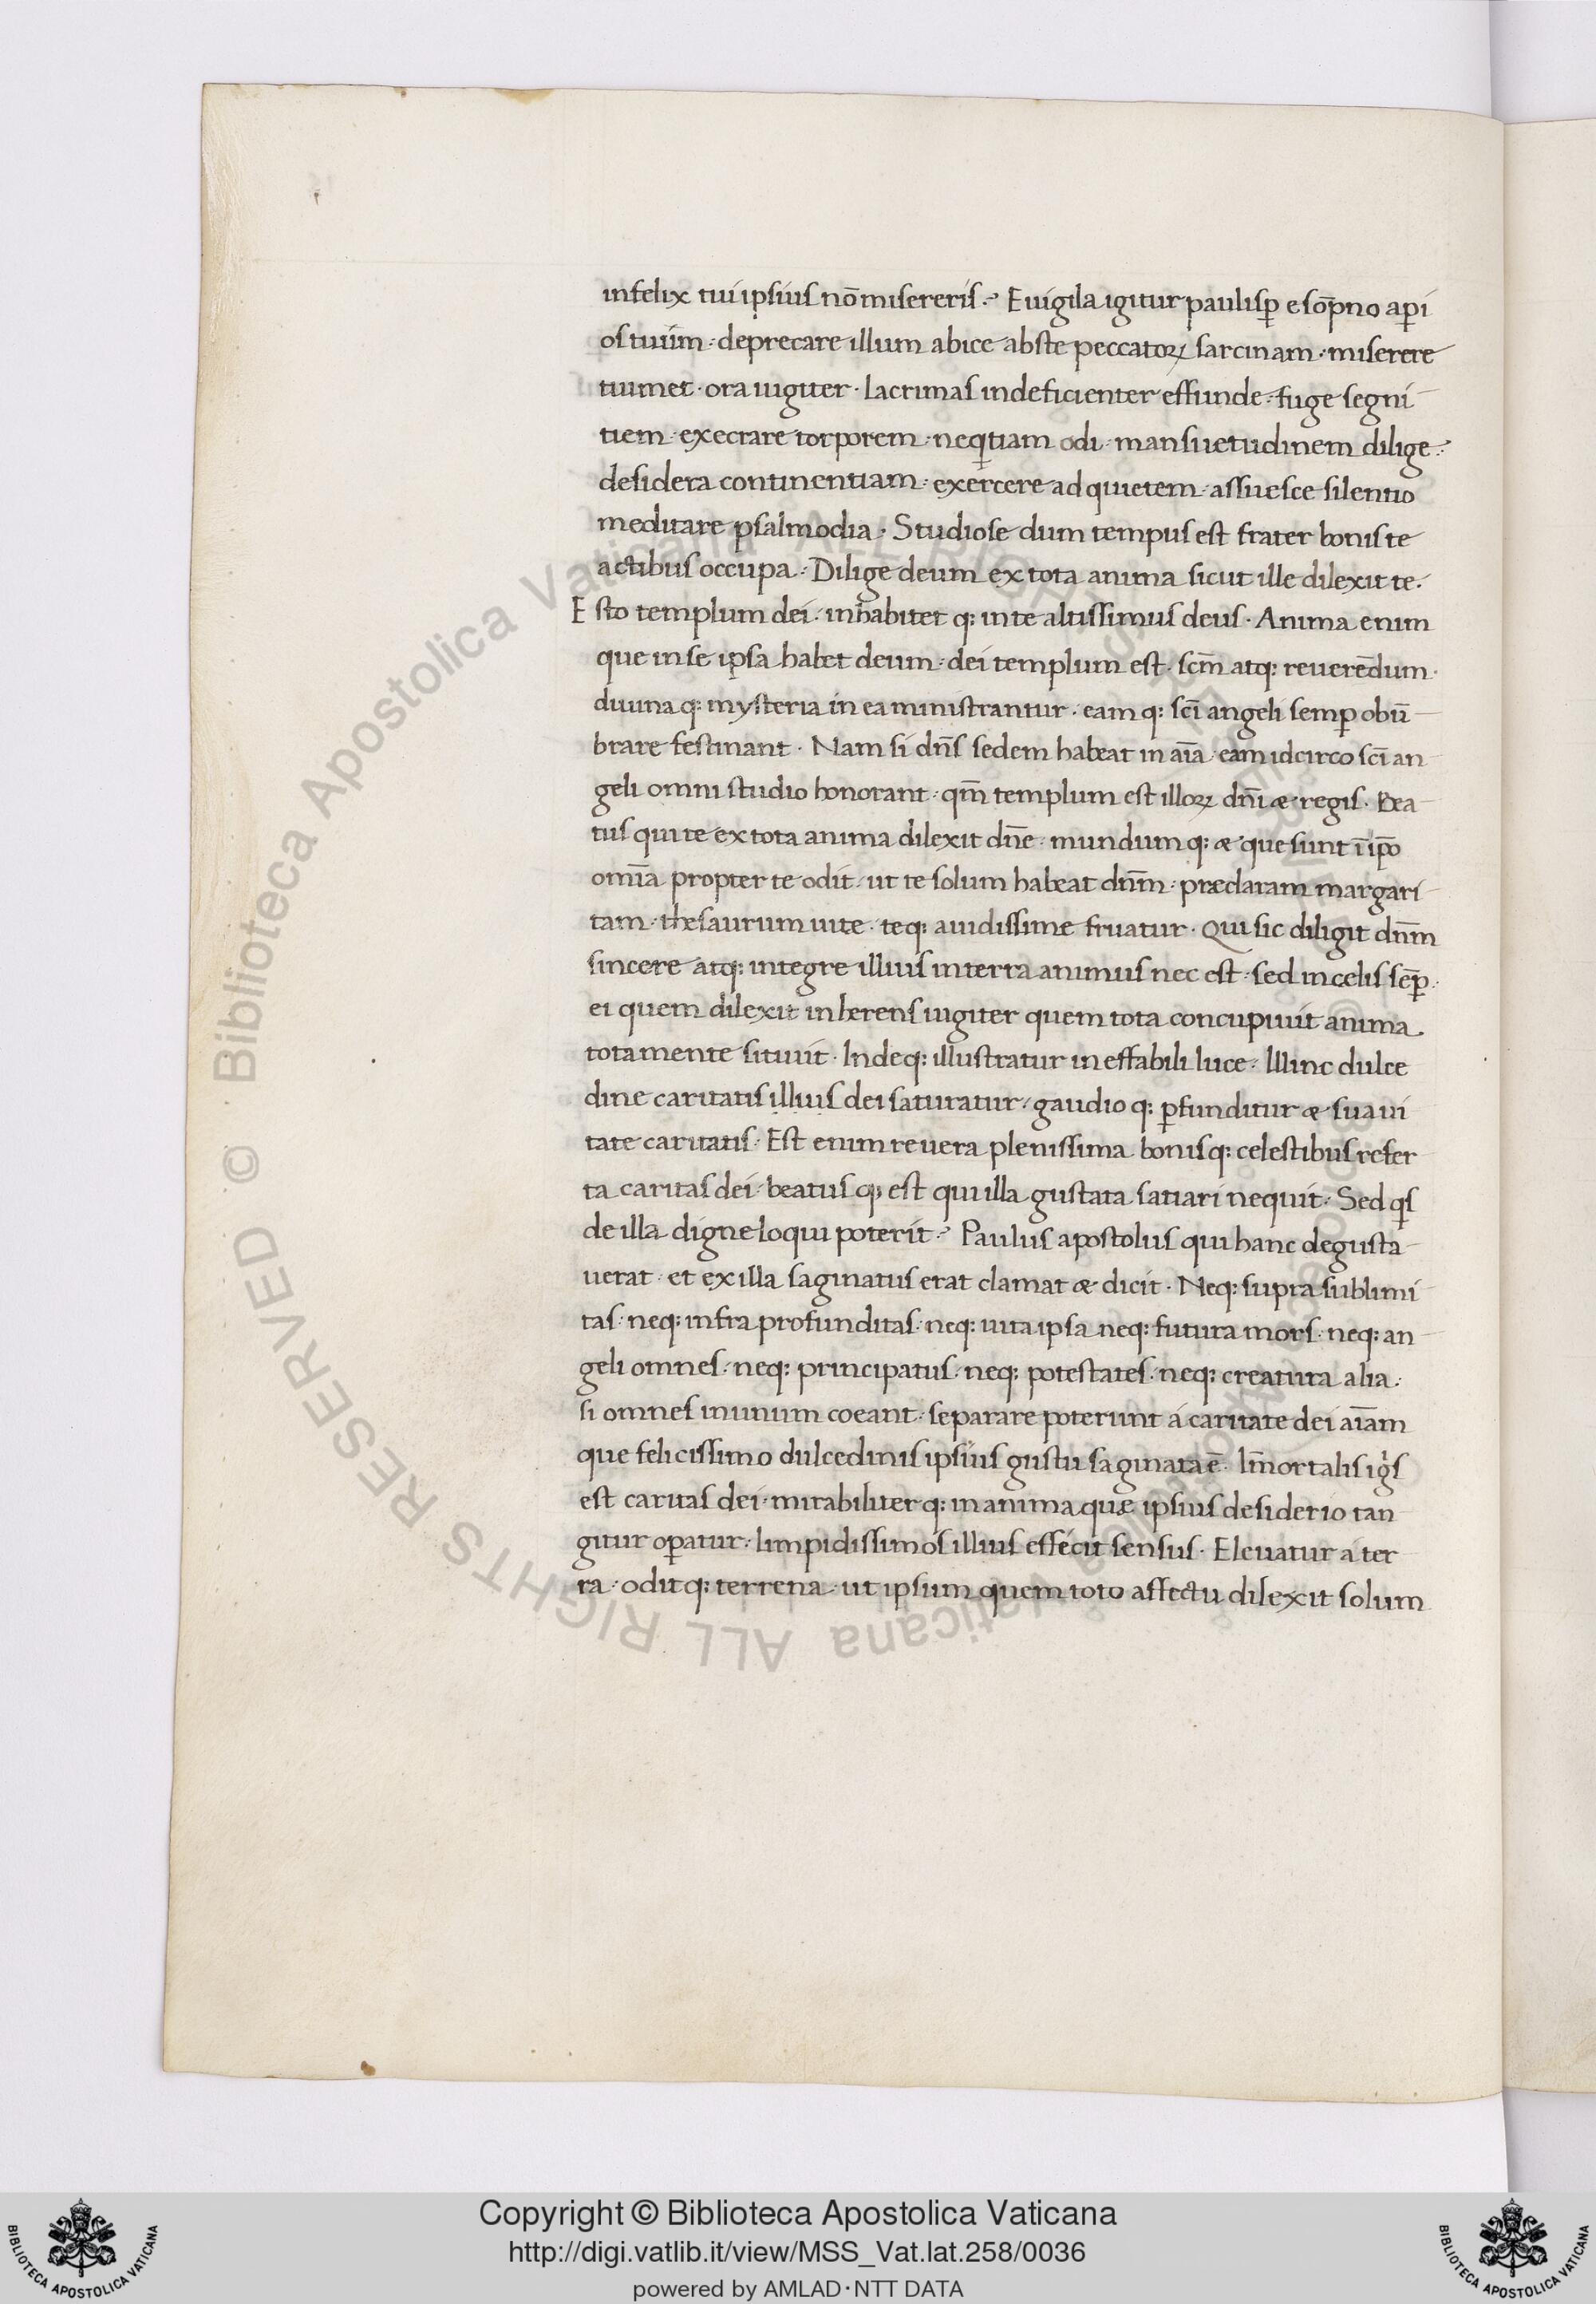 infelix tui ipsius nō misereris? Euigila igitur paulisꝑ e sōpno aꝑi
os tuum · deprecare illum abice abs te peccatoꝝ sarcinam · miserere
tuimet · ora iugiter · lacrimas indeficienter effunde · fuge segni
tiem · execrare torporem · neqͥtiam odi · mansuetudinem dilige ·
desidera continentiam · exercere ad quietem · assuesce silentio
meditare psalmodia · Studiose dum tempus est frater bonis te
actibus occupa · Dilige deum ex tota anima sicut ille dilexit te ·
Esto templum dei · inhabitet q: in te altissimus deus · Anima enim
que in se ipsa habet deum · dei templum est · scm̄ atq: reuerēdum ·
diuina q: mysteria in ea ministrantur · eam q: scī angeli semꝑ obū
brare festinant · Nam si dn̄s sedem habeat in aīa · eam idcirco scī an
geli omni studio honorant · qm̄ templum est illoꝝ dn̄i & regis · Bea
tus qui te ex tota anima dilexit dn̄e · mundum q: & que sunt ī ip̄o
omīa propter te odit · ut te solum habeat dn̄m · præclaram margari
tam · thesaurum uite · teq: auidissime fruatur · Qui sic diligit dn̄m
sincere atq: integre illius in terra animus nec est · sed in celis sēꝑ ·
ei quem dilexit inherens iugiter quem tota concupiuit anima
tota mente sitiuit · Indeq: illustratur ineffabili luce · Illinc dulce
dine caritatis illius dei saturatur · gaudio q: ꝑfunditur & suaui
tate caritatis · Est enim re uera plenissima bonisq: celestibus refer
ta caritas dei · beatus q: est qui illa gustata satiari nequit · Sed qͥs
de illa digne loqui poterit? Paulus apostolus qui hanc degusta
uerat · et ex illa saginatus erat clamat & dicit · Neq: supra sublimi
tas · neq: infra profunditas · neq: uita ipsa neq: futura mors · neq: an
geli omnes · neq: principatus · neq: potestates · neq: creatura alia ·
si omnes in unum coeant · separare poterunt á caritate dei aīam
que felicissimo dulcedinis ipsius gustu saginata ē · Im̄ortalis igͥs
est caritas dei · mirabiliter q: in anima quæ ipsius desiderio tan
gitur oꝑatur · limpidissimos illius effecit sensus · Eleuatur á ter
ra · odit q: terrena · ut ipsum quem toto affectu dilexit solum
© Biblioteca Apostolica Vaticana ALL RIGHTS RESERVED
Copyright © Biblioteca Apostolica Vaticana
http://digi.vatlib.it/view/MSS_Vat.lat.258/0036
powered by AMLAD·NTT DATA
BIBLIOTECA APOSTOLICA VATICANA
BIBLIOTECA APOSTOLICA VATICANA